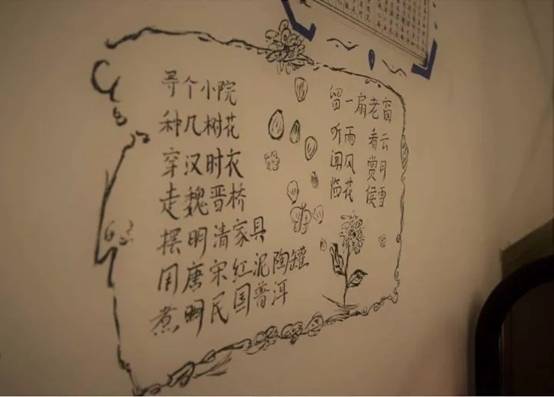 寻个小院
种几树花
穿汉时衣
走魏晋桥
摆明清家具
用唐宋红泥陶罐
煮明民国普洱
留一扇老窗
听雨 看云
闻风 赏月
临花 侯雪